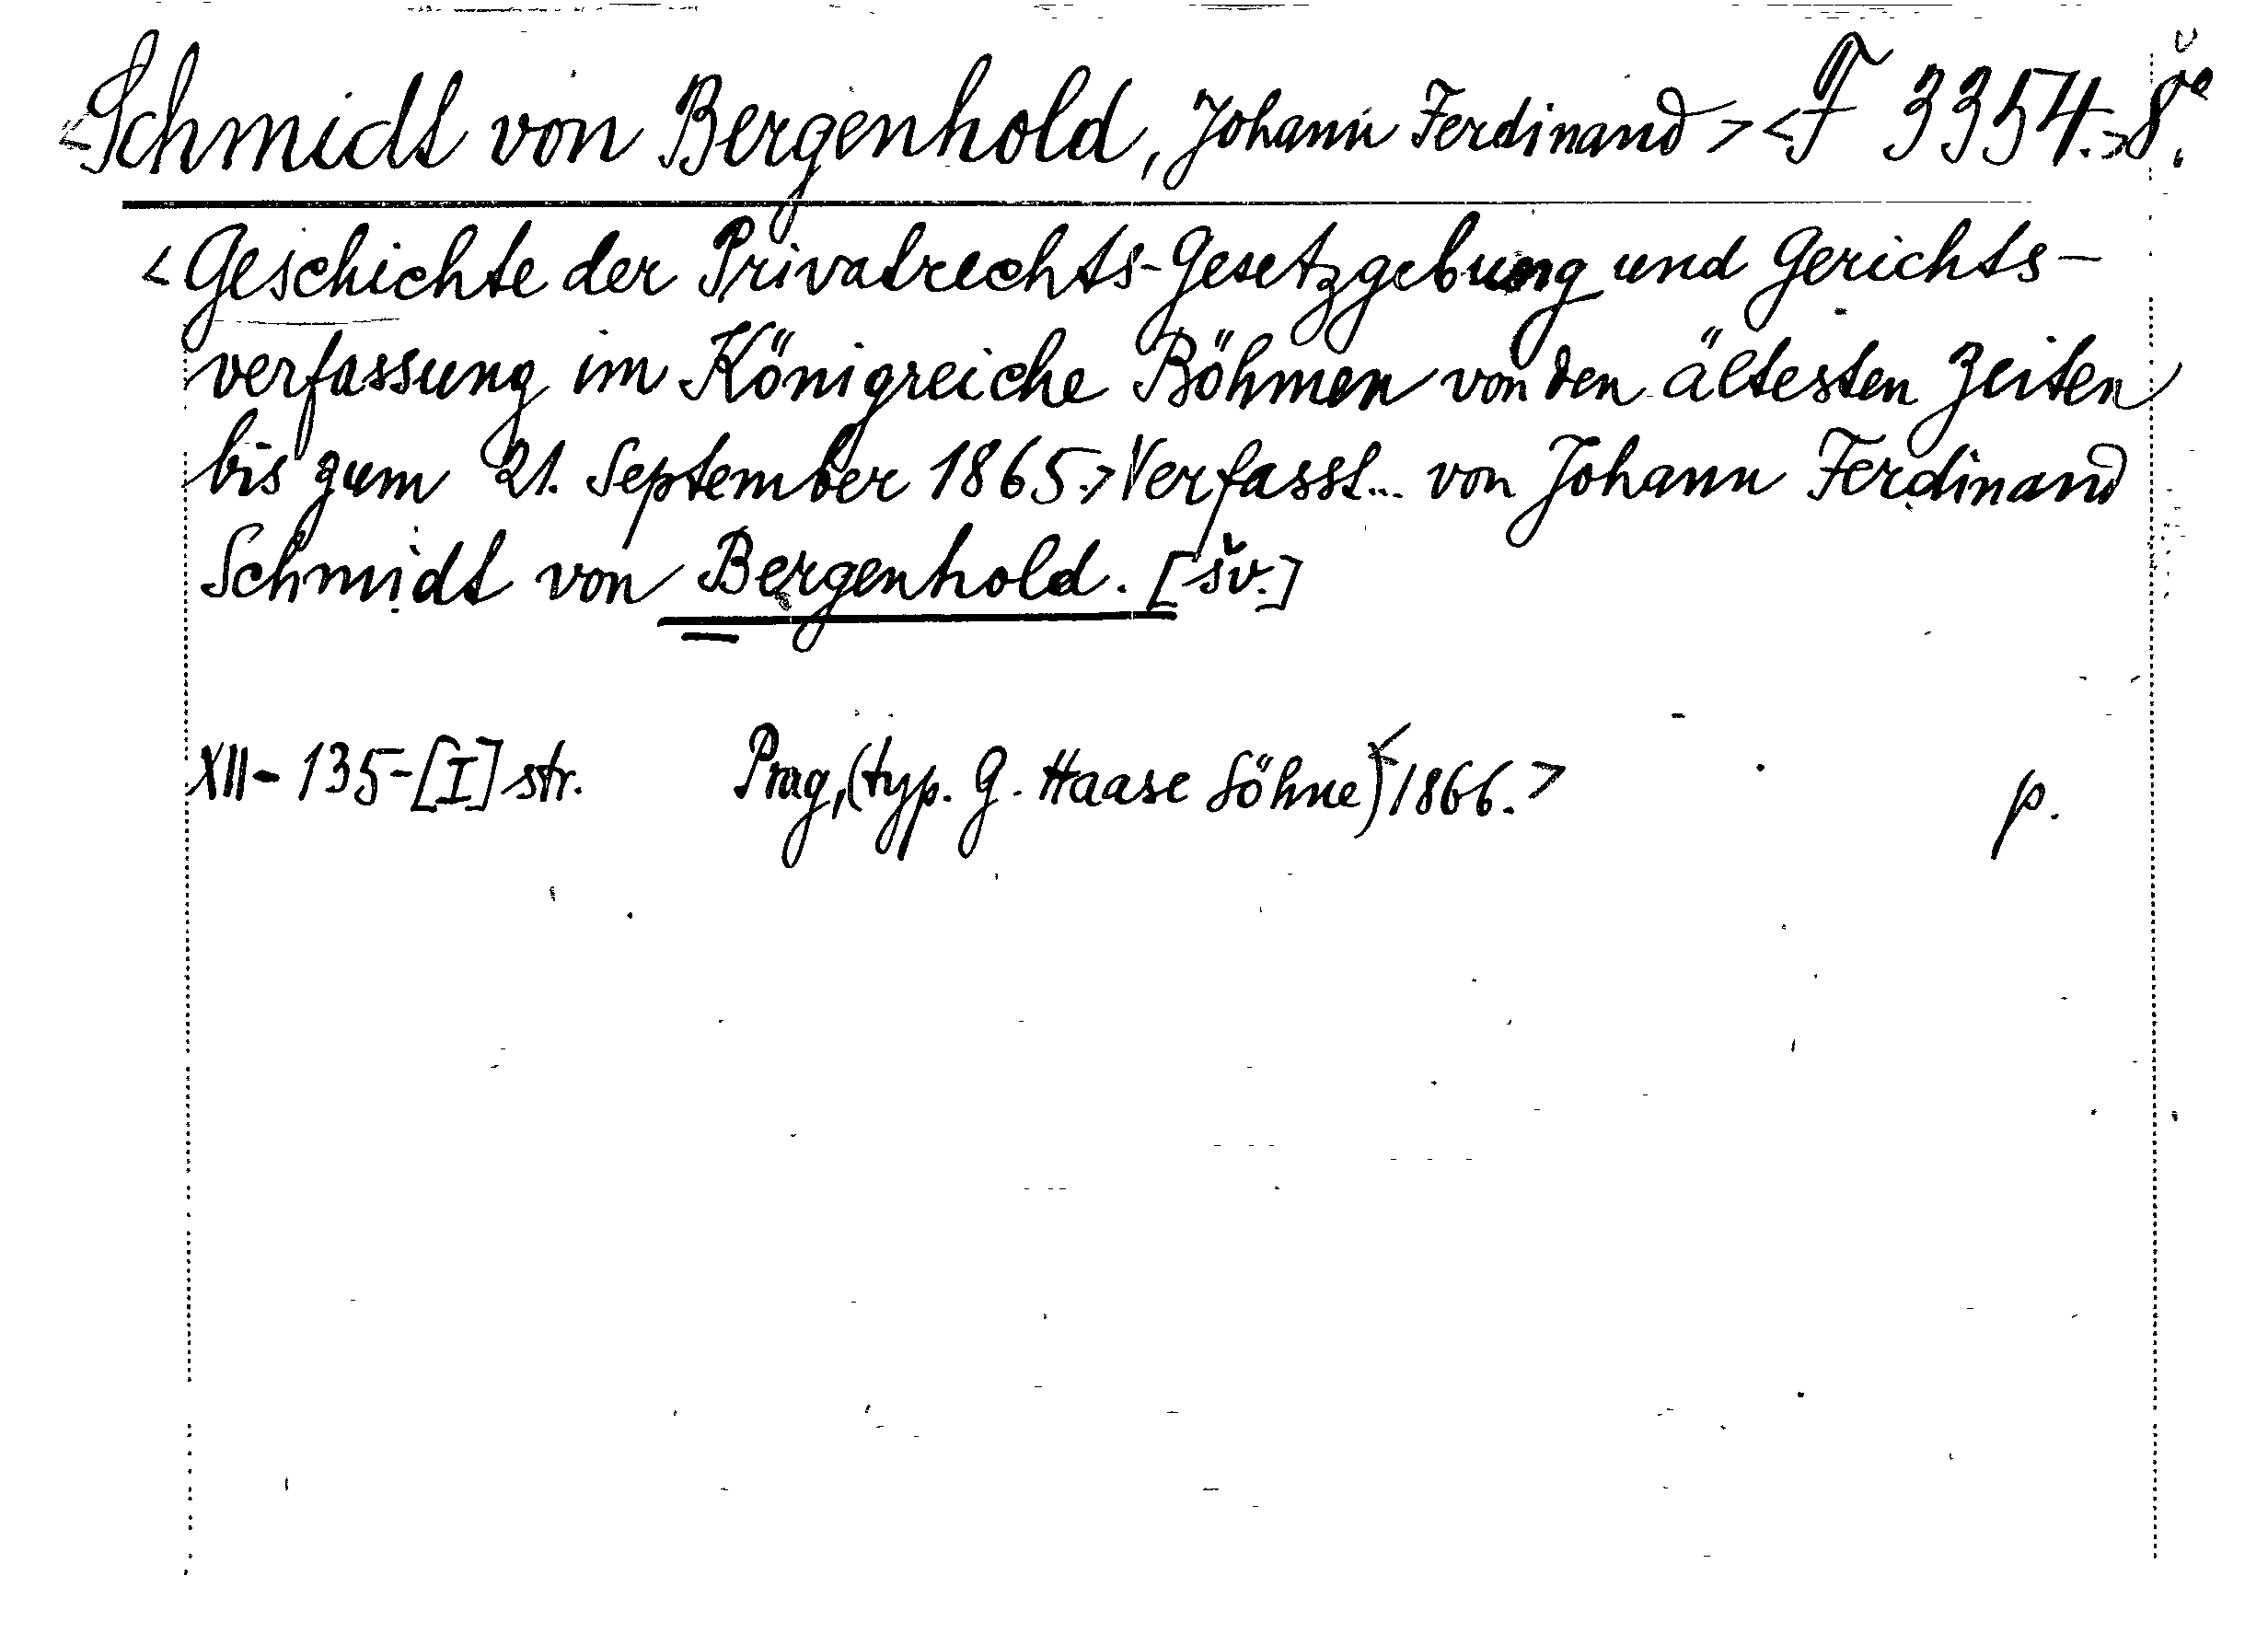 <Schmidt von Bergenhold, Johann Ferdinand> <F 3354.> 8°.
<Geschichte der Privatrechts-Gesetzgebung und Gerichts-
verfassung im Königreiche Böhmen von den ältesten Zeiten
bis zum 21. September 1865.> Verfasst... von Johann Ferdinand
Schmidt von Bergenhold. [šv.]
XII-135-[I] str. Prag, (typ. G. Haase Söhne) <1866.> p.